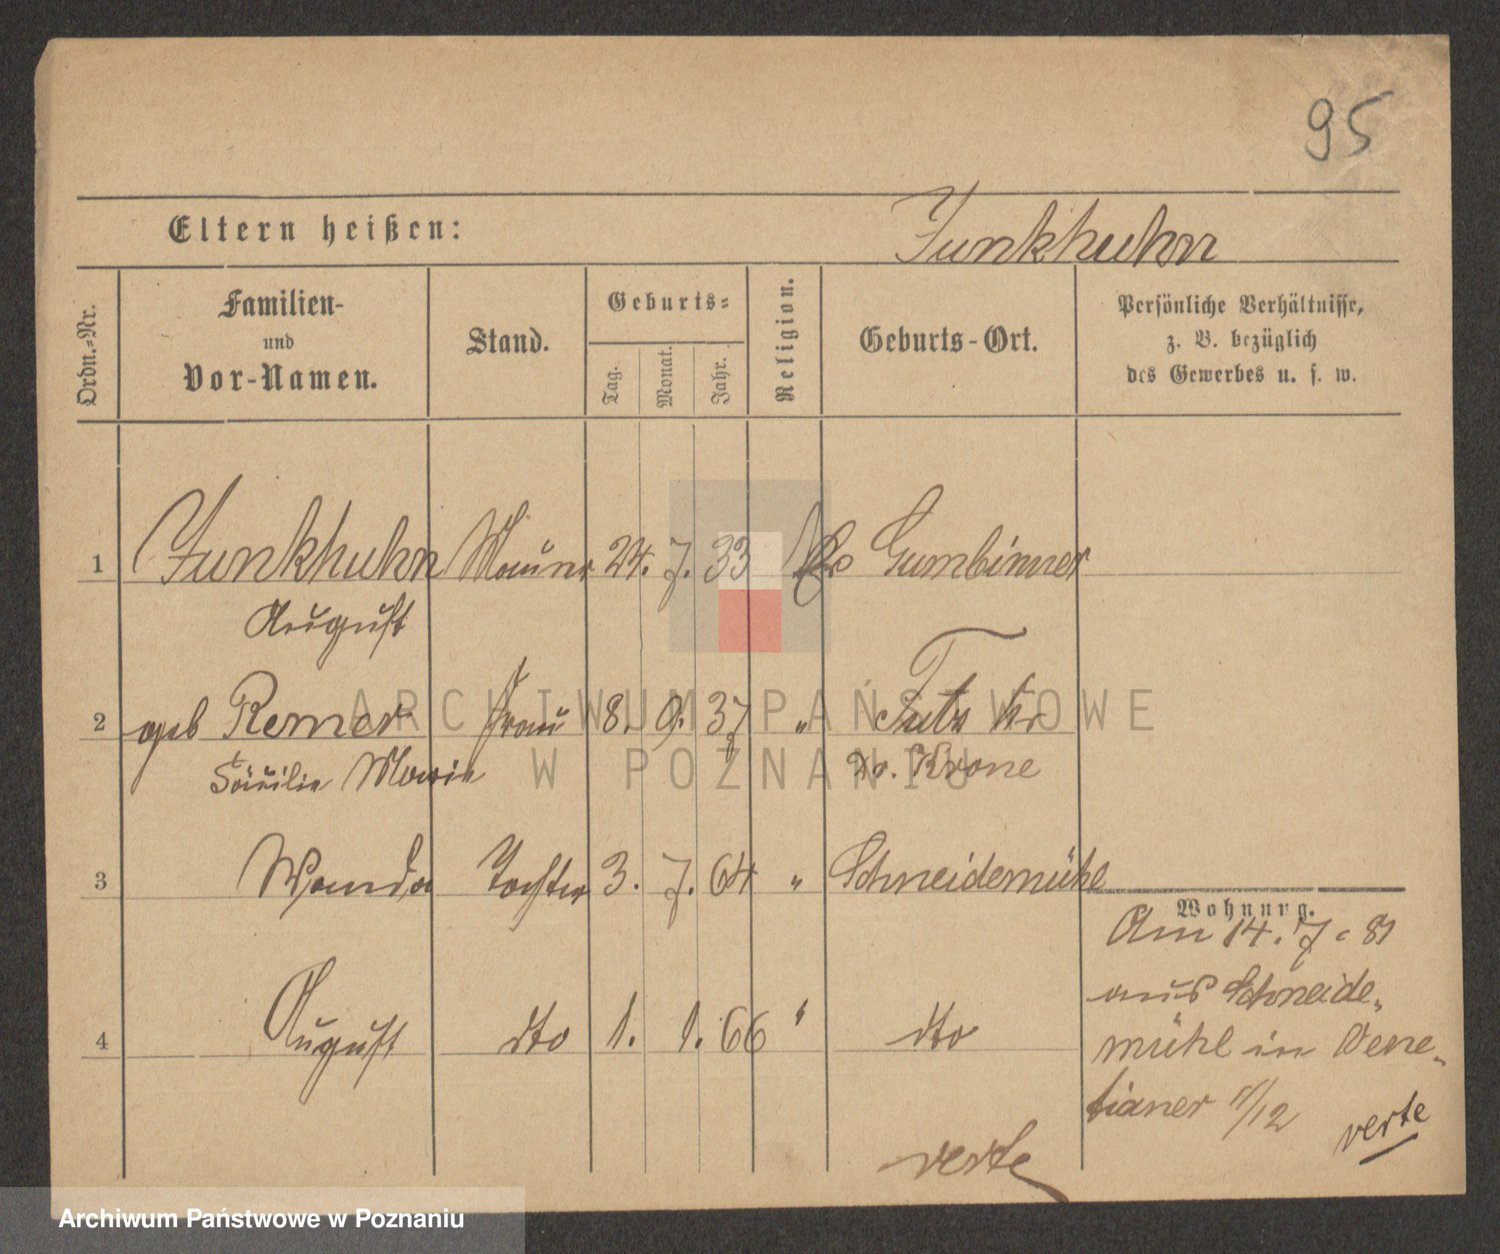 95
Eltern heißen: Funkhuhn
Ordn.-Nr.
Familien-
und
Vor-Namen.
Stand.
Geburts-
Tag.
Monat.
Jahr.
Religion.
Geburts-Ort.
Persönliche Verhältnisse,
z. B. bezüglich
des Gewerbes u. s. w.
1 Funkhuhn Maurer 24. 7. 33 Gumbinner
August
2 geb Remer Frau 8. 9. 37 " Tütz Kr
Cäcilie Marie Dt. Krone
3 Wanda Tochter 3. 7. 64 " Schneidemühl
Wohnung.
Am 14. 7. 81
aus Schneide-
4 August dto 1. 1. 66 " dto
mühl in Vene-
tianer 11/12
verte
verte
ARCHIWUM PAŃSTWOWE
W POZNANIU
Archiwum Państwowe w Poznaniu